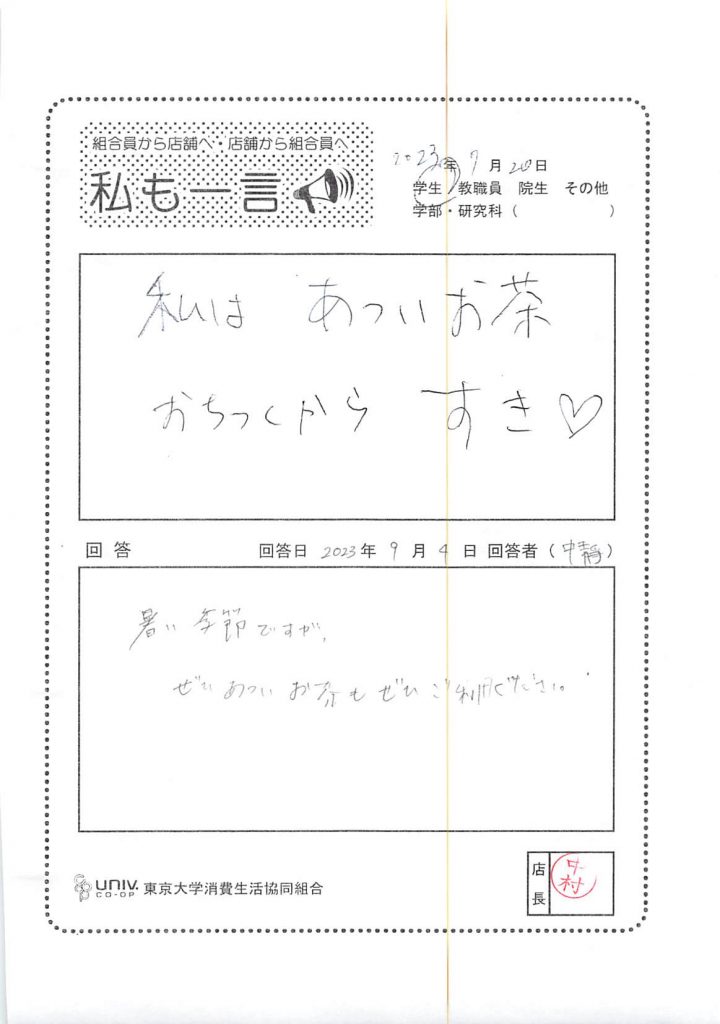 組合員から店舗へ・店舗から組合員へ
私も一言
2023年 9月 20日
学生 教職員 院生 その他
学部・研究科( )
私は あついお茶
おちつくから すき♡
回答 回答日 2023年 9月 4日 回答者(中靜)
暑い季節ですが、
ぜひ あつい お茶も ぜひ ご利用ください。
UNIV. CO-OP 東京大学消費生活協同組合
店長 中村